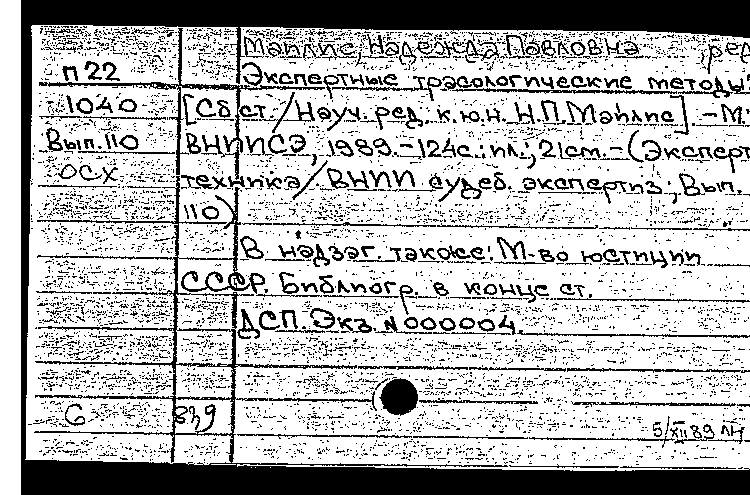 Майлис, Надежда Павловна ред
п22 Экспертные трасологические методы:
1040 [Сб.ст./Науч. ред. к.ю.н. Н.П.Майлис]. – М.:
Вып.110 ВНИИСЭ, 1989.-124с.:ил.; 21см.-(Эксперт
ОСХ техника/ВНИИ судеб. экспертиз; Вып.
110)
В надзаг. также: М-во юстиции
СССР. Библиогр. в конце ст.
ДСП. Экз. N000004.
С 839
5/XII 89 ЛН